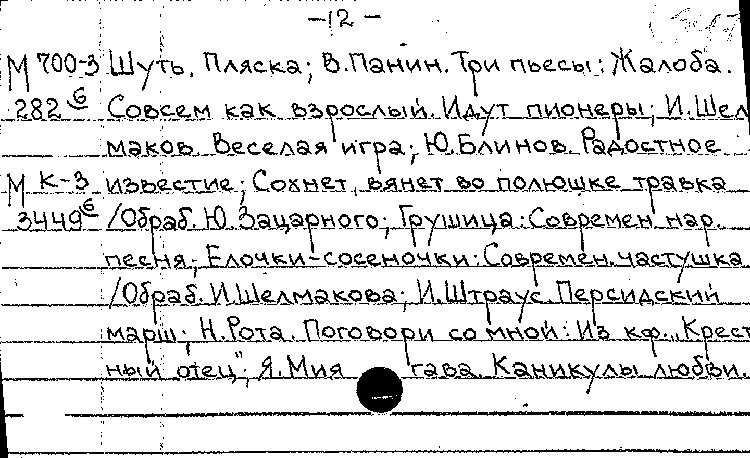 -12-
М 700-3 Шуть. Пляска; В.Панин. Три пьесы: Жалоба.
282 б Совсем как взрослый. Идут пионеры; И.Шел
маков. Веселая игра; Ю.Блинов. Радостное
М К-3 известие; Сохнет, вянет во полюшке травка
3449 б /Обраб. Ю.Зацарного; Грушица: Современ. нар.
песня; Елочки-сосеночки: Современ. частушка
/Обраб. И.Шелмакова; И.Штраус. Персидский
марш; Н.Рота. Поговори со мной: Из кф. „Крест
ный отец"; Я.Мия гава. Каникулы любви.